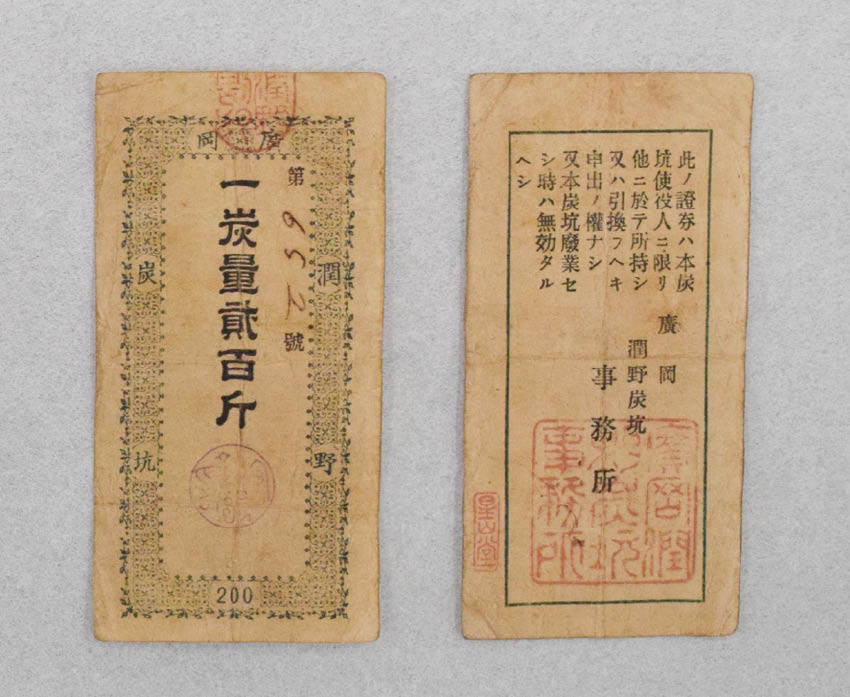 廣岡
潤野
炭坑
第 號
一炭量貳百斤
200
此ノ證券ハ本炭
坑使役人ニ限リ
他ニ於テ所持シ
又ハ引換フヘキ
申出ノ權ナシ
又本炭坑廢業セ
シ時ハ無効タル
ヘシ
廣岡
潤野炭坑
事務所
廣岡潤
野炭坑
事務所